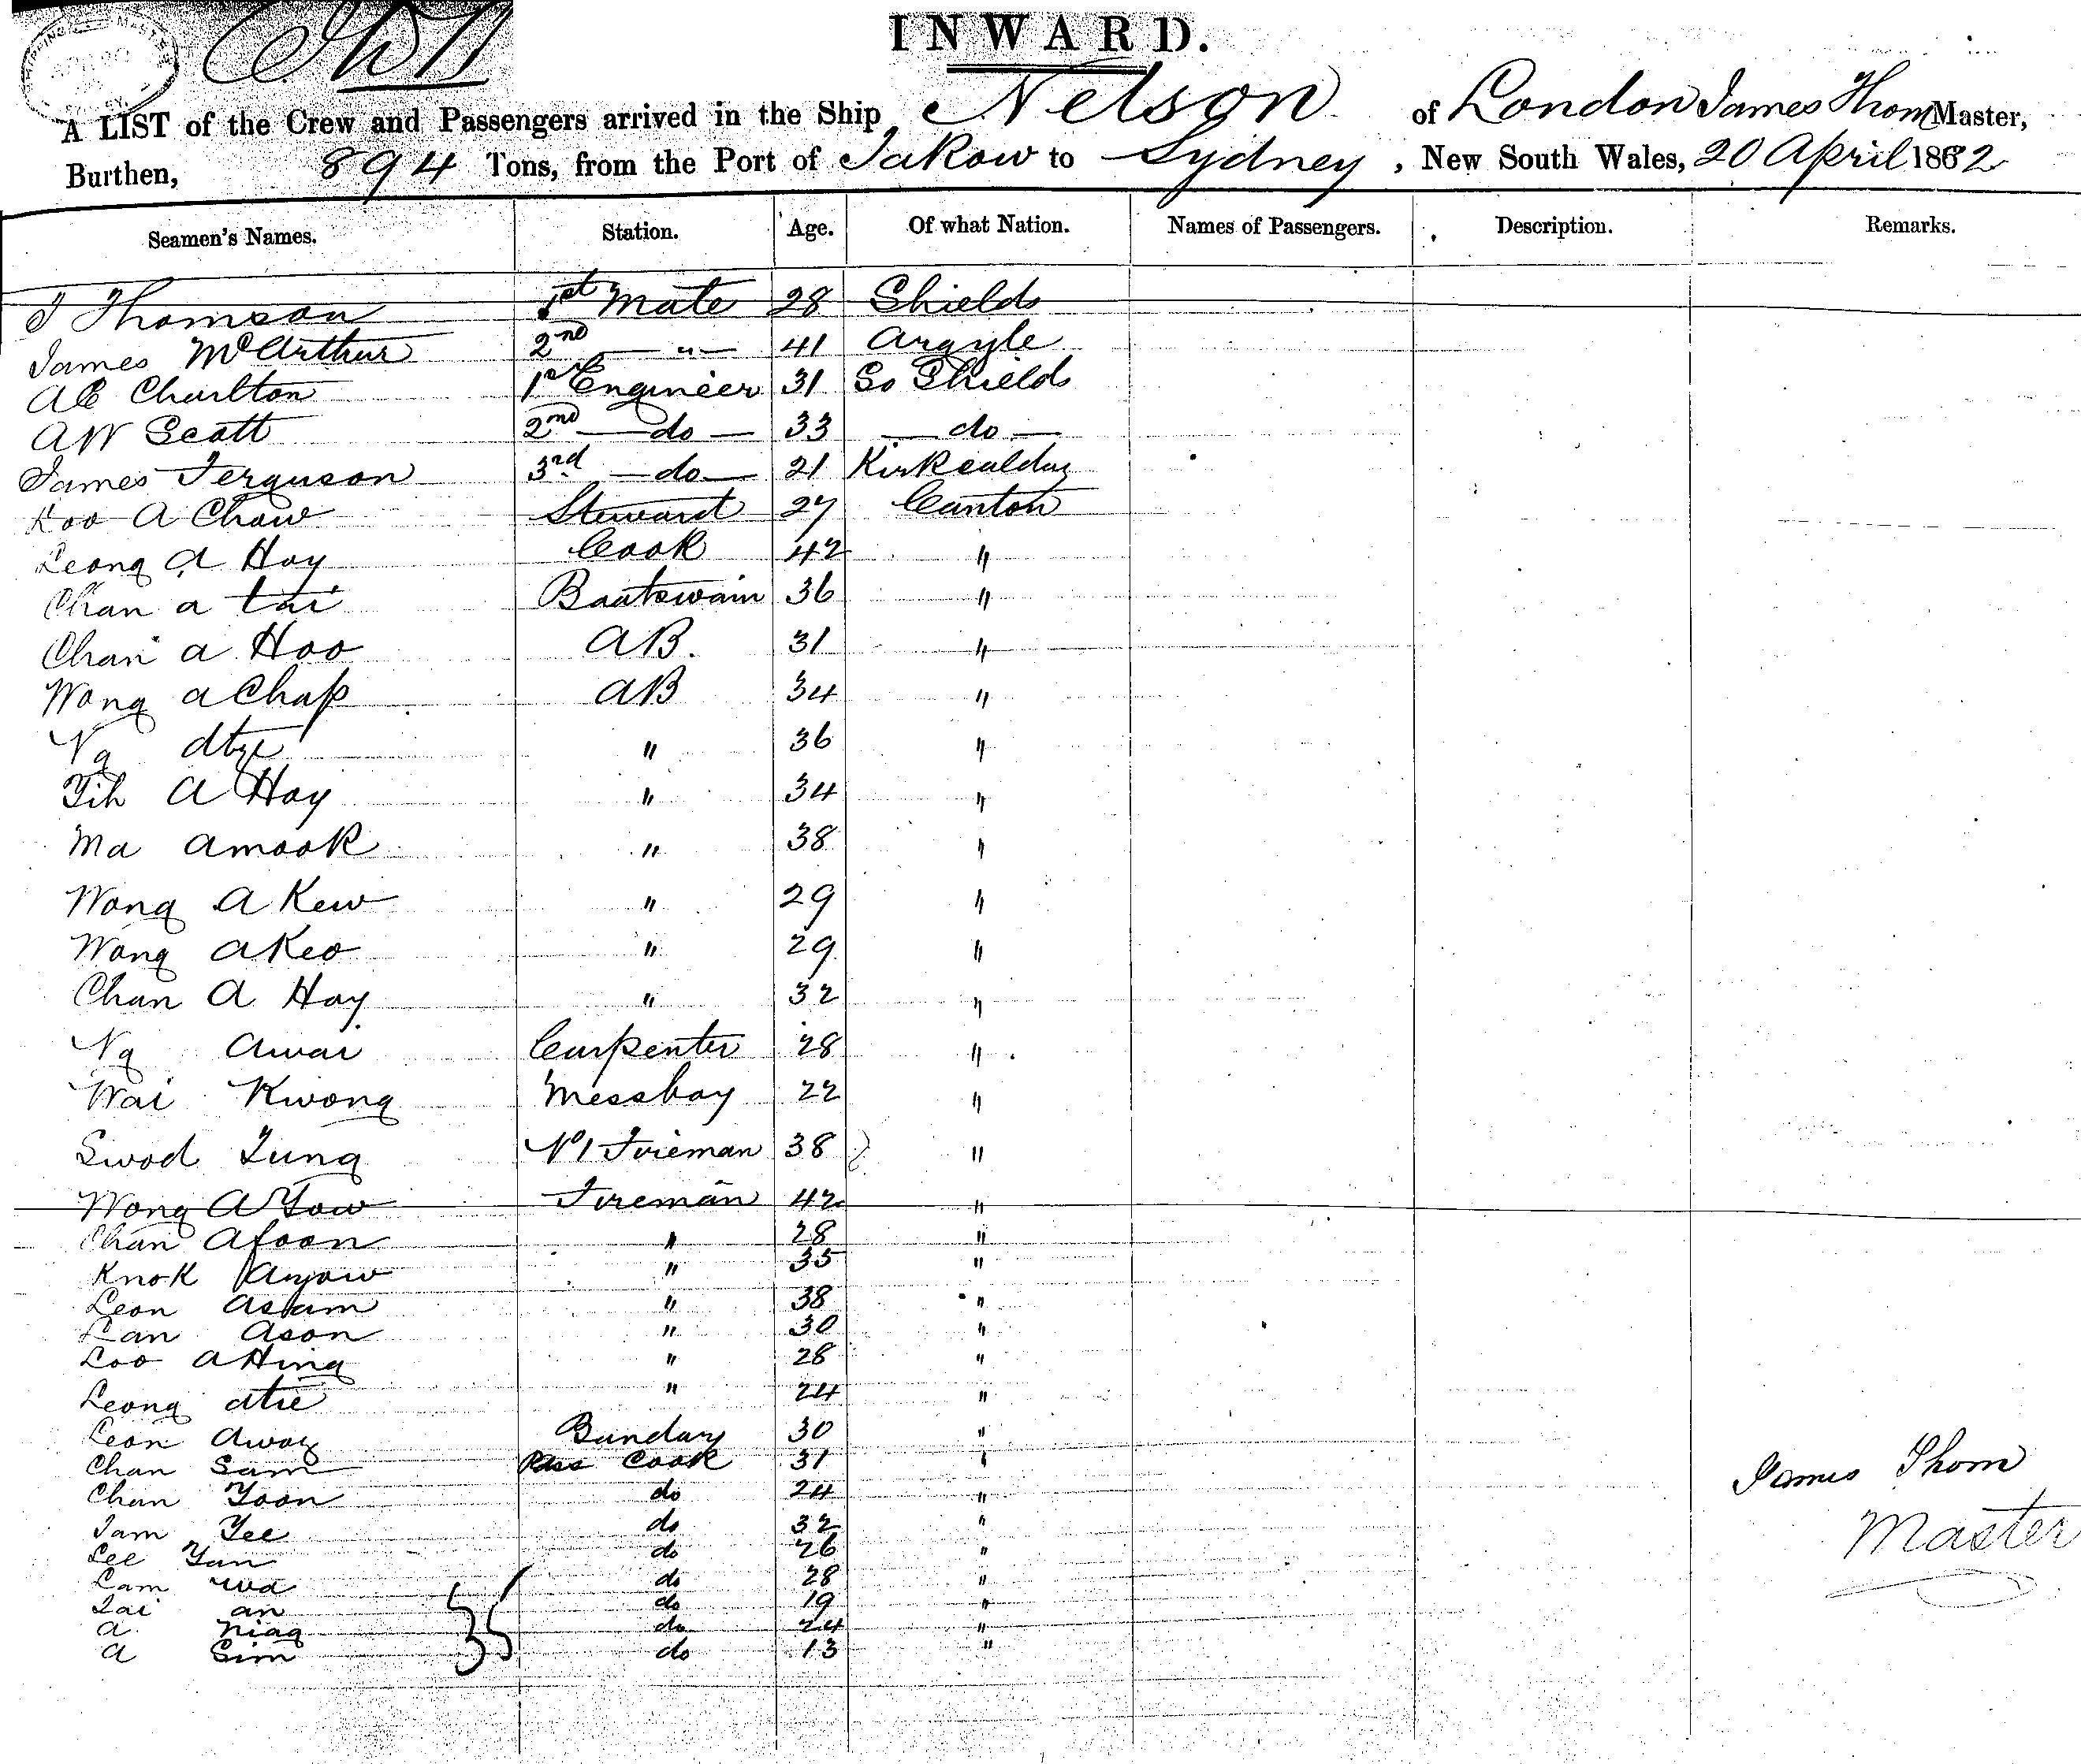 INWARD.
A LIST of the Crew and Passengers arrived in the Ship Nelson of London James Thom Master,
Burthen, 894 Tons, from the Port of Takow to Sydney, New South Wales, 20 April 1882
Seamen's Names. Station. Age. Of what Nation. Names of Passengers. Description. Remarks.
J Thomson 1st Mate 28 Shields
James McArthur 2nd — " — 41 Argyle
AE Charlton 1st Engineer 31 So Shields
AW Scott 2nd — do — 33 — do —
James Ferguson 3rd — do — 21 Kirkcalday
Koo A Chow Steward 27 Canton
Leong A Hoy Cook 42 "
Chan a tai Boatswain 36 "
Chan a Hoo AB. 31 "
Wong a Chap AB 34 "
Ng " 36 "
Yih A Hoy " 34 "
Ma Amook " 38 "
Wong A Kew " 29 "
Wong AKeo " 29 "
Chan A Hoy " 32 "
Ng Awai Carpenter 28 "
Wai Kwong Messboy 22 "
Swod Tung No 1 Fireman 38 "
Wong A Yow Fireman 42 "
Chan Afoon " 28 "
Knok " 35 "
Leon Assam " 38 "
Lan Ason " 30 "
Loo AHing " 28 "
Leong Atie " 24 "
Leon Away Bunday 30 "
Chan Sam Pass Cook 31 "
Chan Yoon do 24 "
Tam Yee do 32 "
Lee Yun do 26 "
Lam do 28 "
Tai an do 19 "
A Niag do 24 "
A Sim do 13 "
35
James Thom
Master